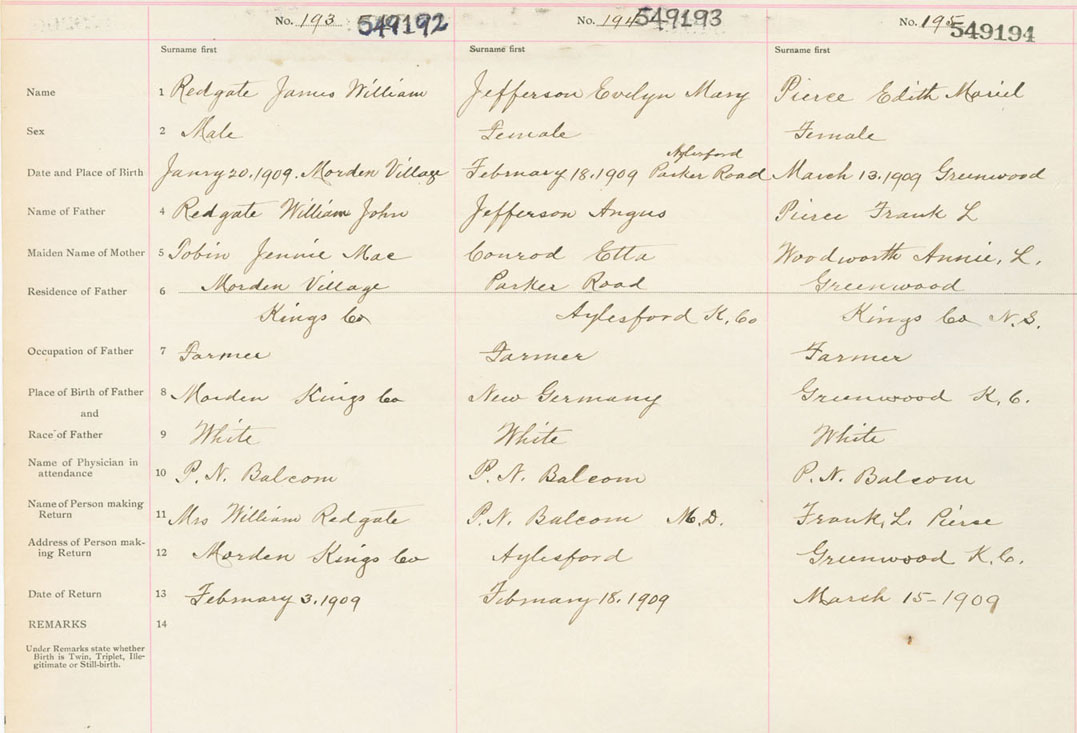 No. 193 549192 No. 194 549193 No. 195 549194
Surname first Surname first Surname first
Name 1 Redgate James William Jefferson Evelyn Mary Pierce Edith Mariel
Sex 2 Male Female Female
Aylesford
Date and Place of Birth 3 Janry 20. 1909. Morden Village February 18. 1909 Parker Road March 13. 1909 Greenwood
Name of Father 4 Redgate William John Jefferson Angus Pierce Frank L
Maiden Name of Mother 5 Tobin Jennie Mae Conrod Etta Woodworth Annie, L.
Residence of Father 6 Morden Village Parker Road Greenwood
Kings Co Aylesford K. Co Kings Co N.S.
Occupation of Father 7 Farmer Farmer Farmer
Place of Birth of Father 8 Morden Kings Co New Germany Greenwood K. C.
and
Race of Father 9 White White White
Name of Physician in
attendance 10 P. N. Balcom P. N. Balcom P. N. Balcom
Name of Person making
Return 11 Mrs William Redgate P. N. Balcom M.D. Frank, L. Pierse
Address of Person mak-
ing Return 12 Morden Kings Co Aylesford Greenwood K. C.
Date of Return 13 February 3. 1909 February 18. 1909 March 15 - 1909
REMARKS 14
Under Remarks state whether
Birth is Twin, Triplet, Ille-
gitimate or Still-birth.